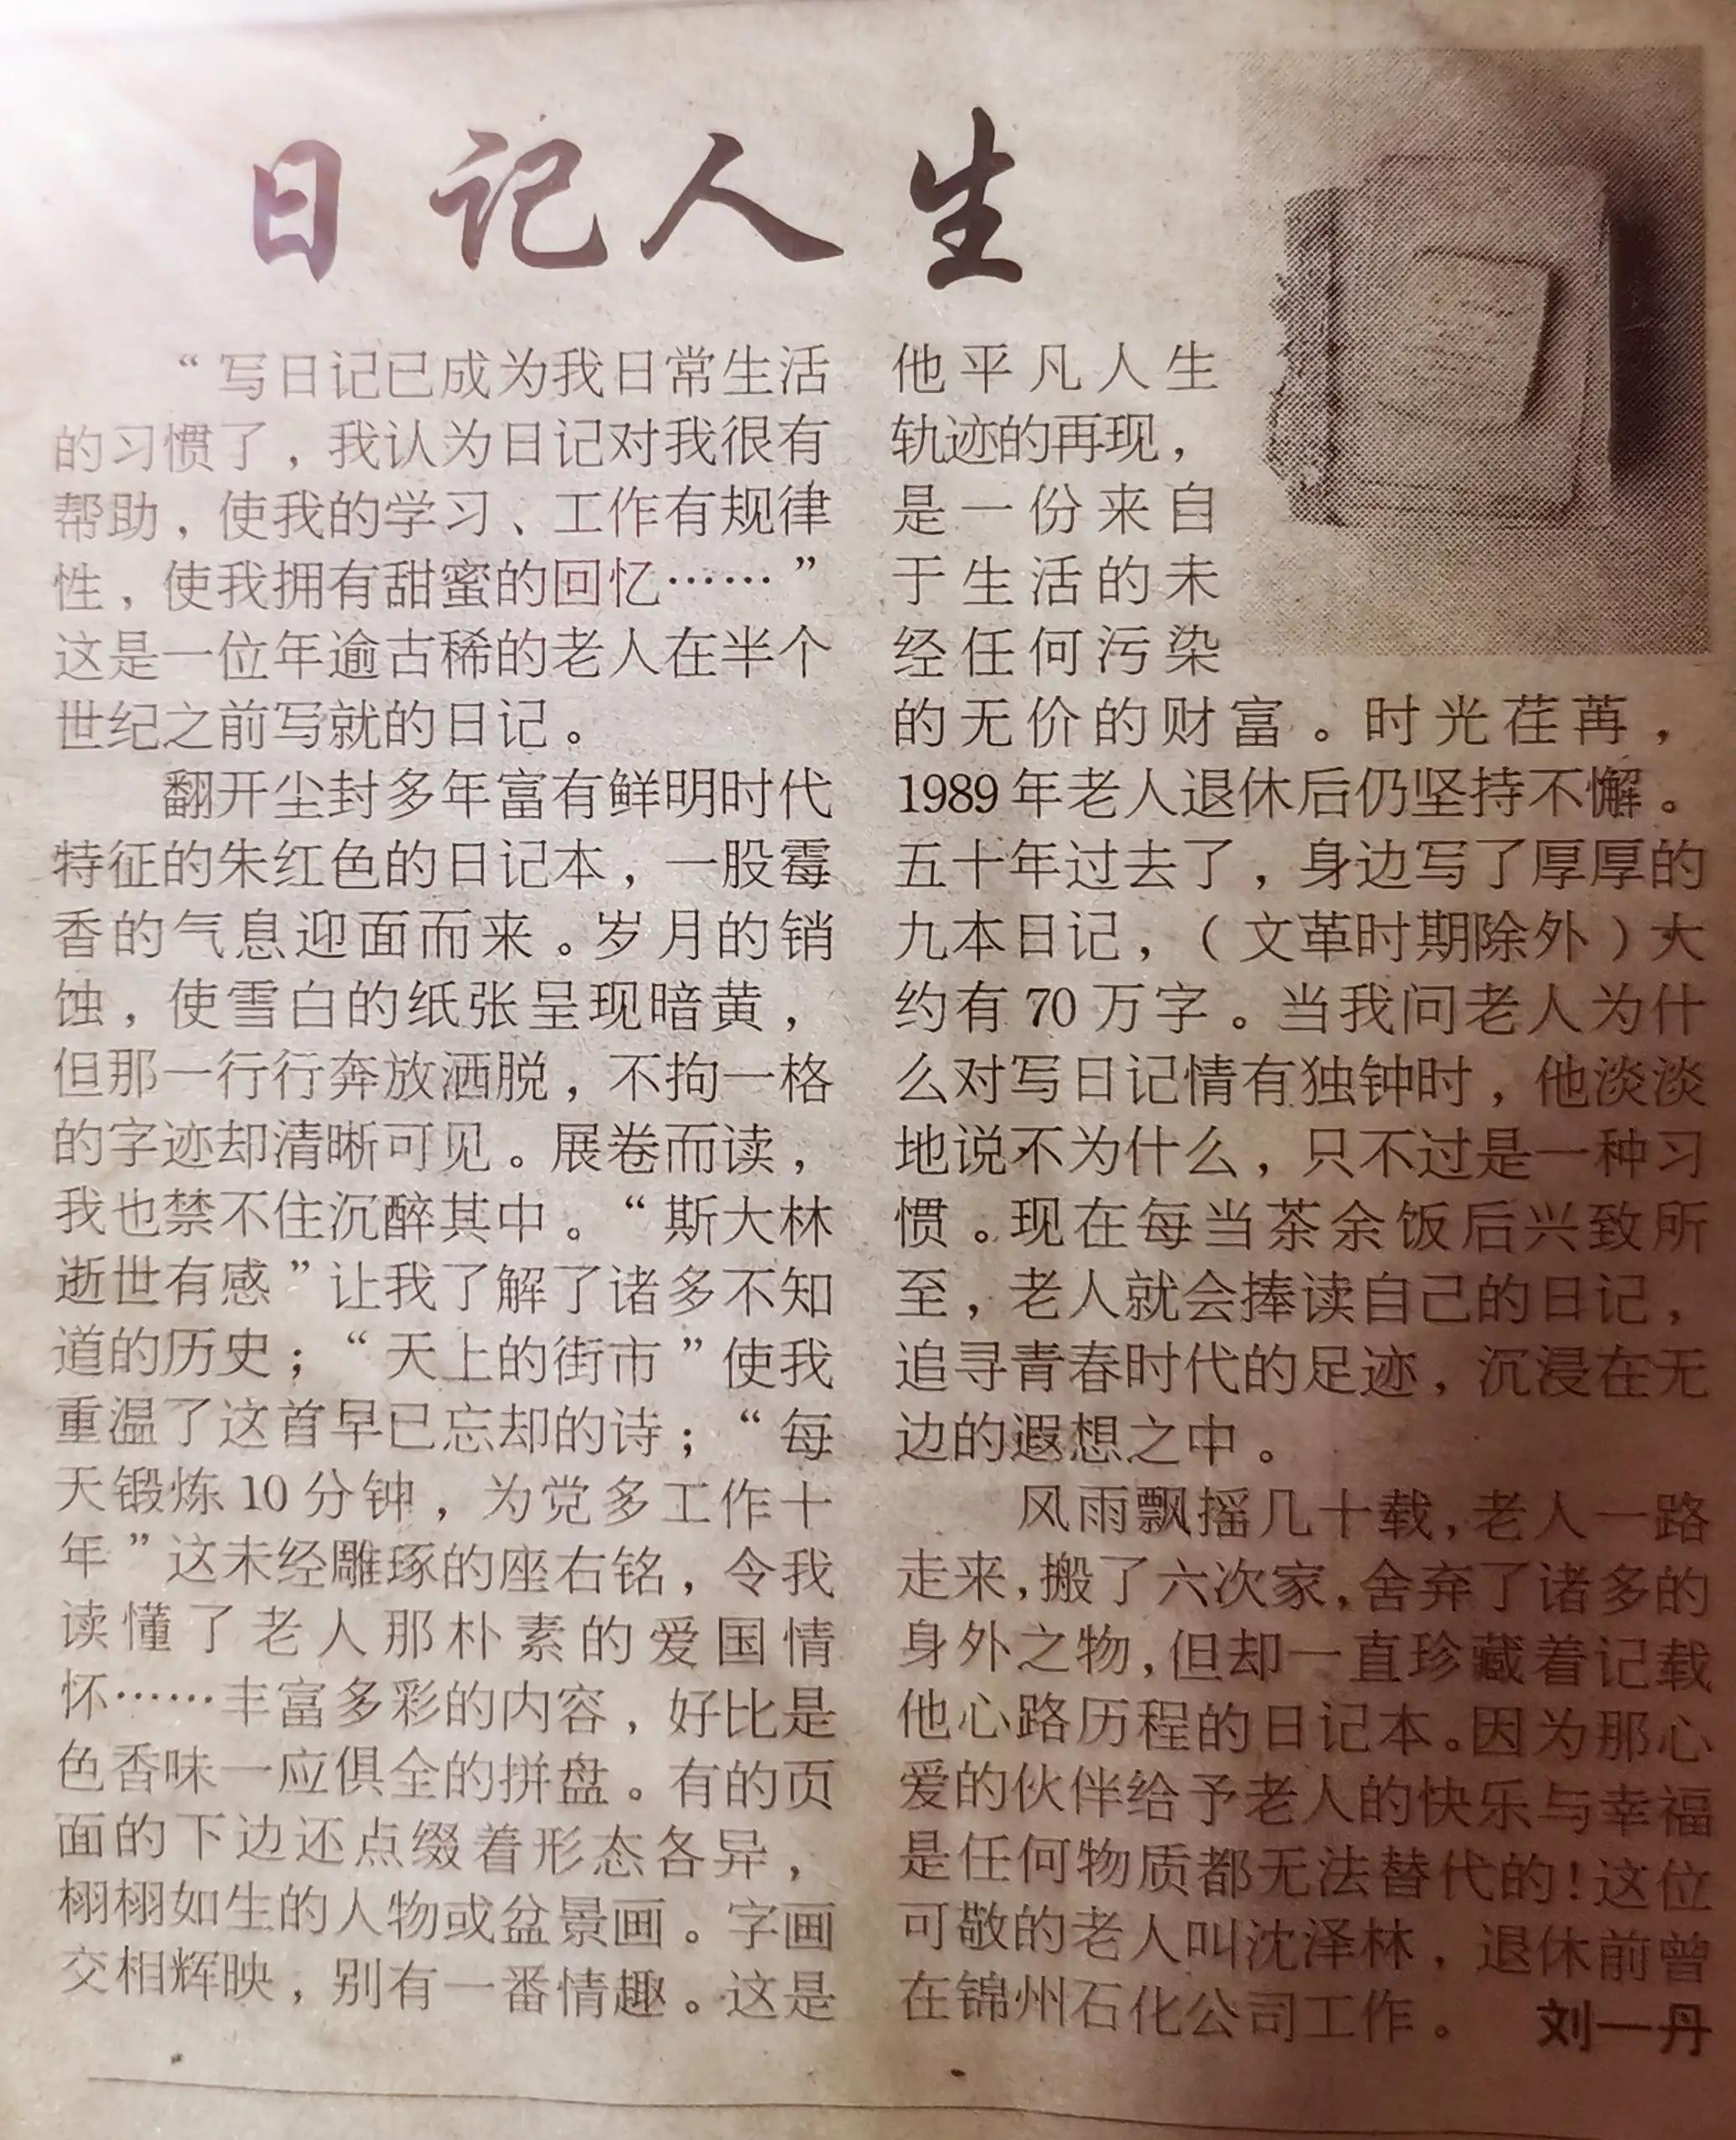 日记人生
“写日记已成为我日常生活
的习惯了，我认为日记对我很有
帮助，使我的学习、工作有规律
性，使我拥有甜蜜的回忆……”
这是一位年逾古稀的老人在半个
世纪之前写就的日记。
翻开尘封多年富有鲜明时代
特征的朱红色的日记本，一股霉
香的气息迎面而来。岁月的销
蚀，使雪白的纸张呈现暗黄，
但那一行行奔放洒脱，不拘一格
的字迹却清晰可见。展卷而读，
我也禁不住沉醉其中。“斯大林
逝世有感”让我了解了诸多不知
道的历史；“天上的街市”使我
重温了这首早已忘却的诗；“每
天锻炼10分钟，为党多工作十
年”这未经雕琢的座右铭，令我
读懂了老人那朴素的爱国情
怀……丰富多彩的内容，好比是
色香味一应俱全的拼盘。有的页
面的下边还点缀着形态各异，
栩栩如生的人物或盆景画。字画
交相辉映，别有一番情趣。这是
他平凡人生
轨迹的再现，
是一份来自
于生活的未
经任何污染
的无价的财富。时光荏苒，
1989年老人退休后仍坚持不懈。
五十年过去了，身边写了厚厚的
九本日记，（文革时期除外）大
约有70万字。当我问老人为什
么对写日记情有独钟时，他淡淡
地说不为什么，只不过是一种习
惯。现在每当茶余饭后兴致所
至，老人就会捧读自己的日记，
追寻青春时代的足迹，沉浸在无
边的遐想之中。
风雨飘摇几十载，老人一路
走来，搬了六次家，舍弃了诸多的
身外之物，但却一直珍藏着记载
他心路历程的日记本。因为那心
爱的伙伴给予老人的快乐与幸福
是任何物质都无法替代的！这位
可敬的老人叫沈泽林，退休前曾
在锦州石化公司工作。 刘一丹